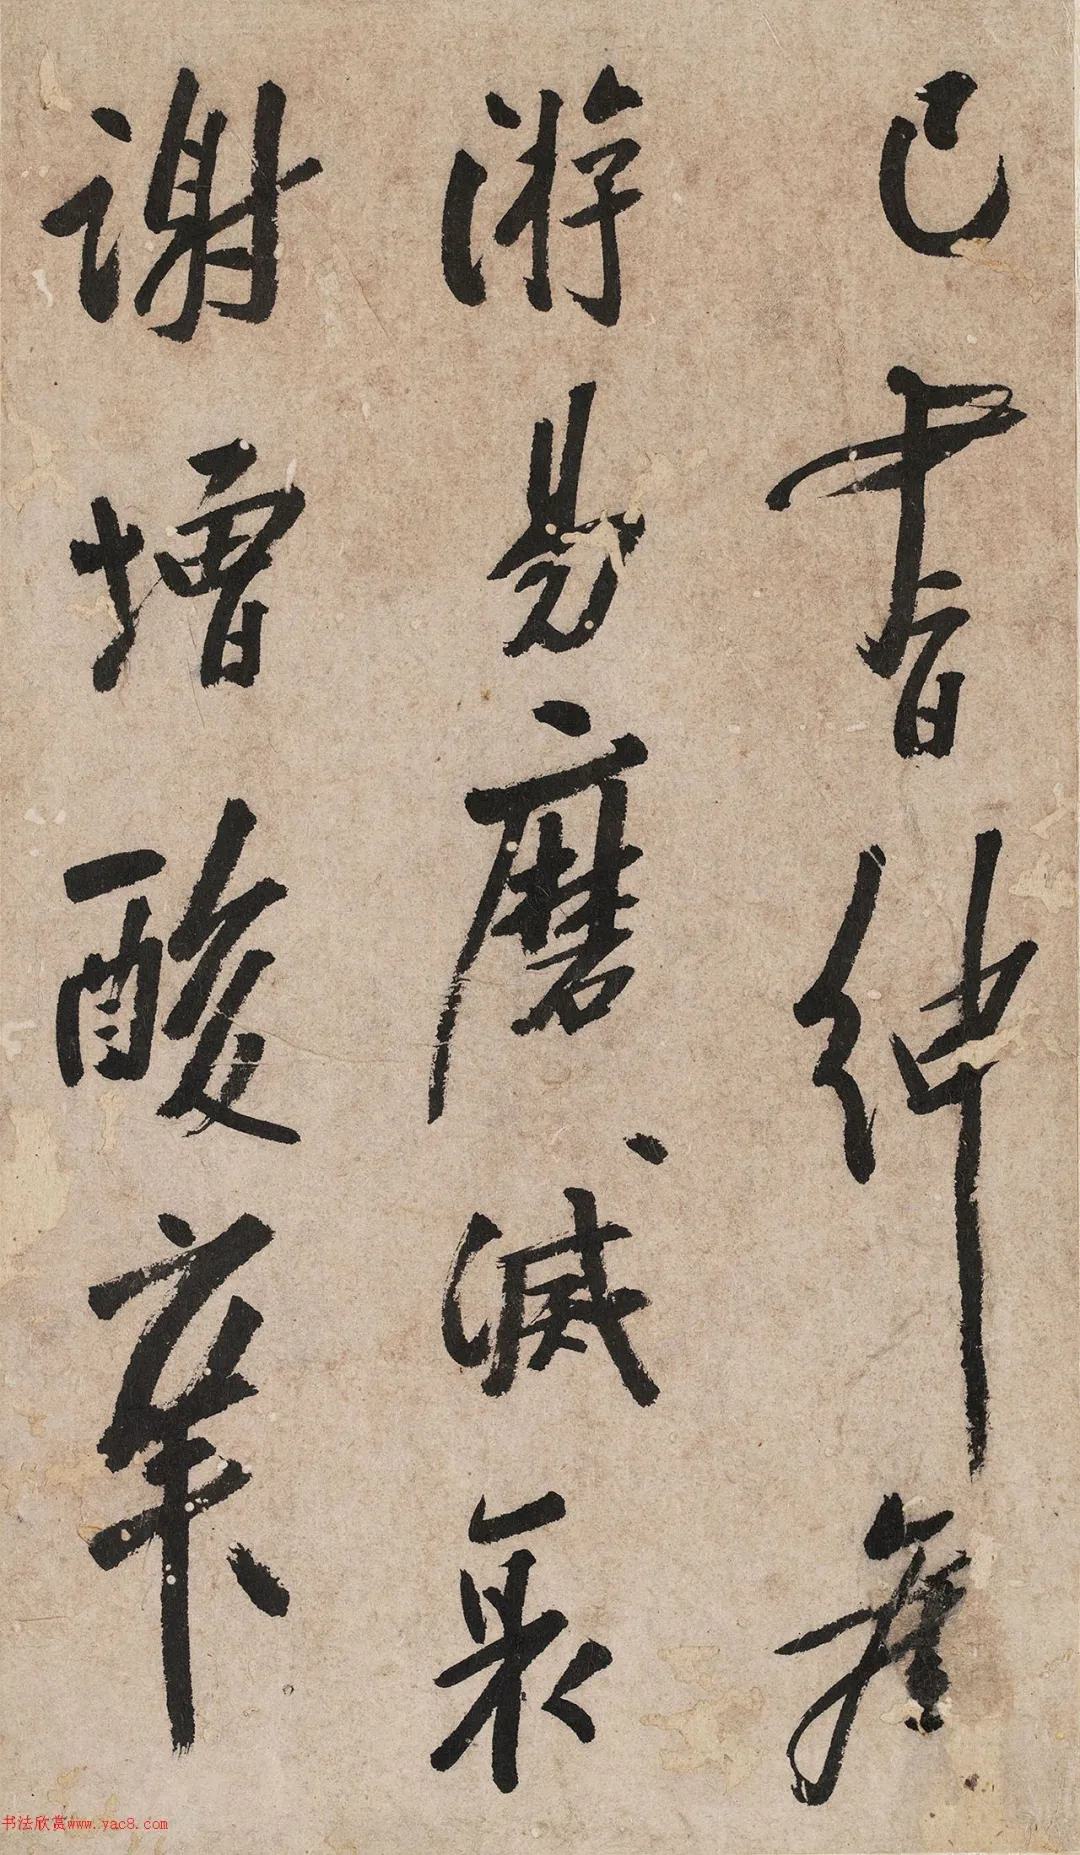 已書紳舊
游易磨滅衰
謝增酸辛
书法欣赏www.yac8.com